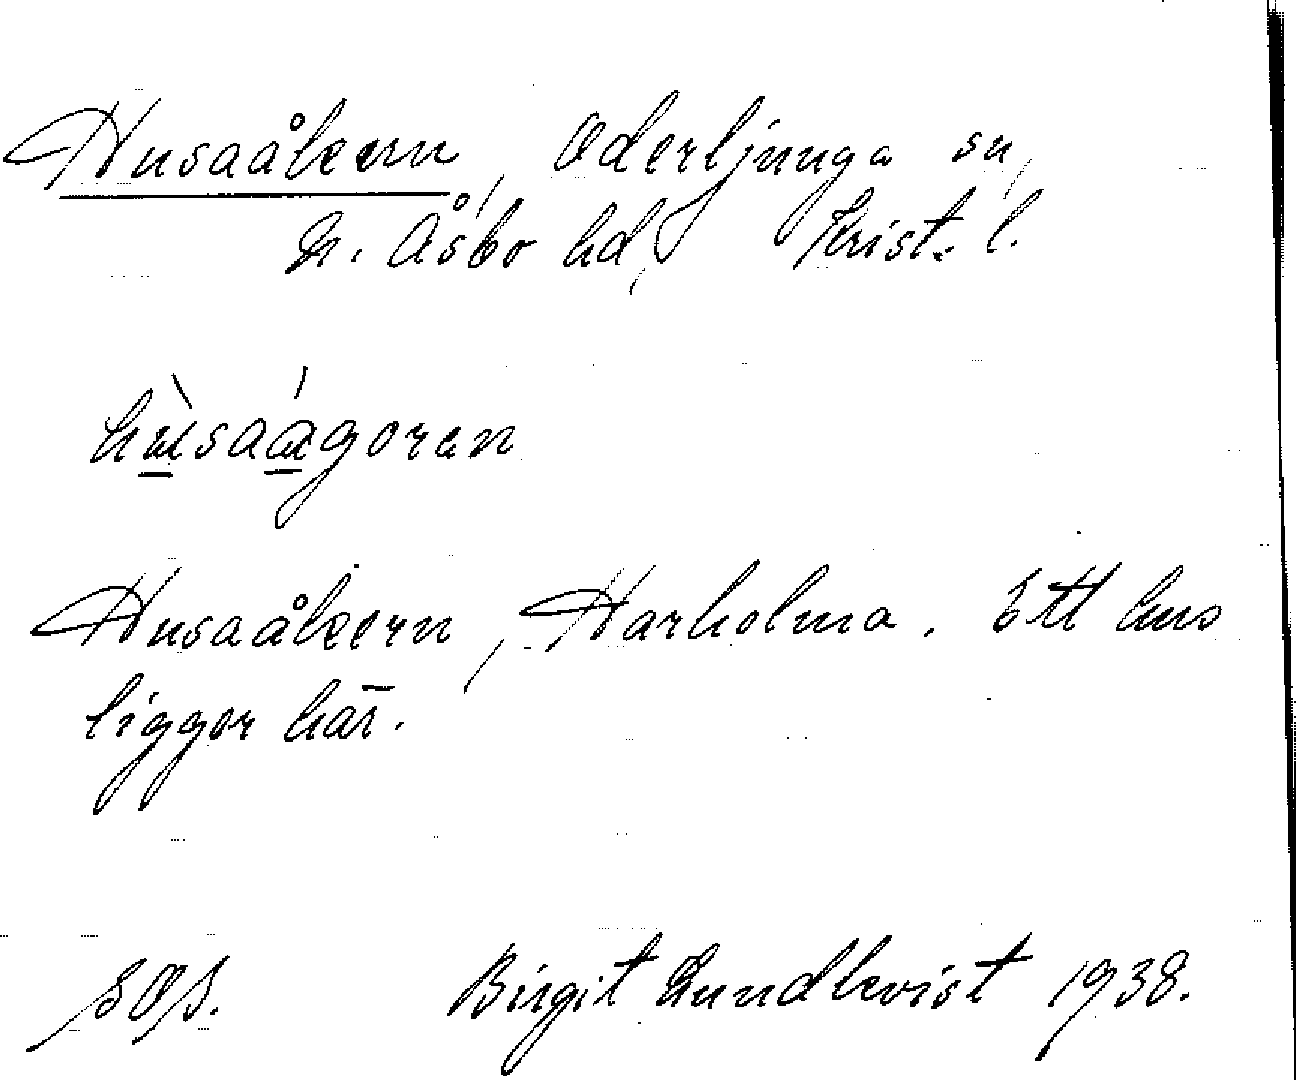 Husaåkern, Oderljunga sn,
N. Åsbo hd, Krist. l.
hùsaágoran
Husaåkern, Harholma. Ett hus
ligger här.
Birgit Lundkvist 1938.